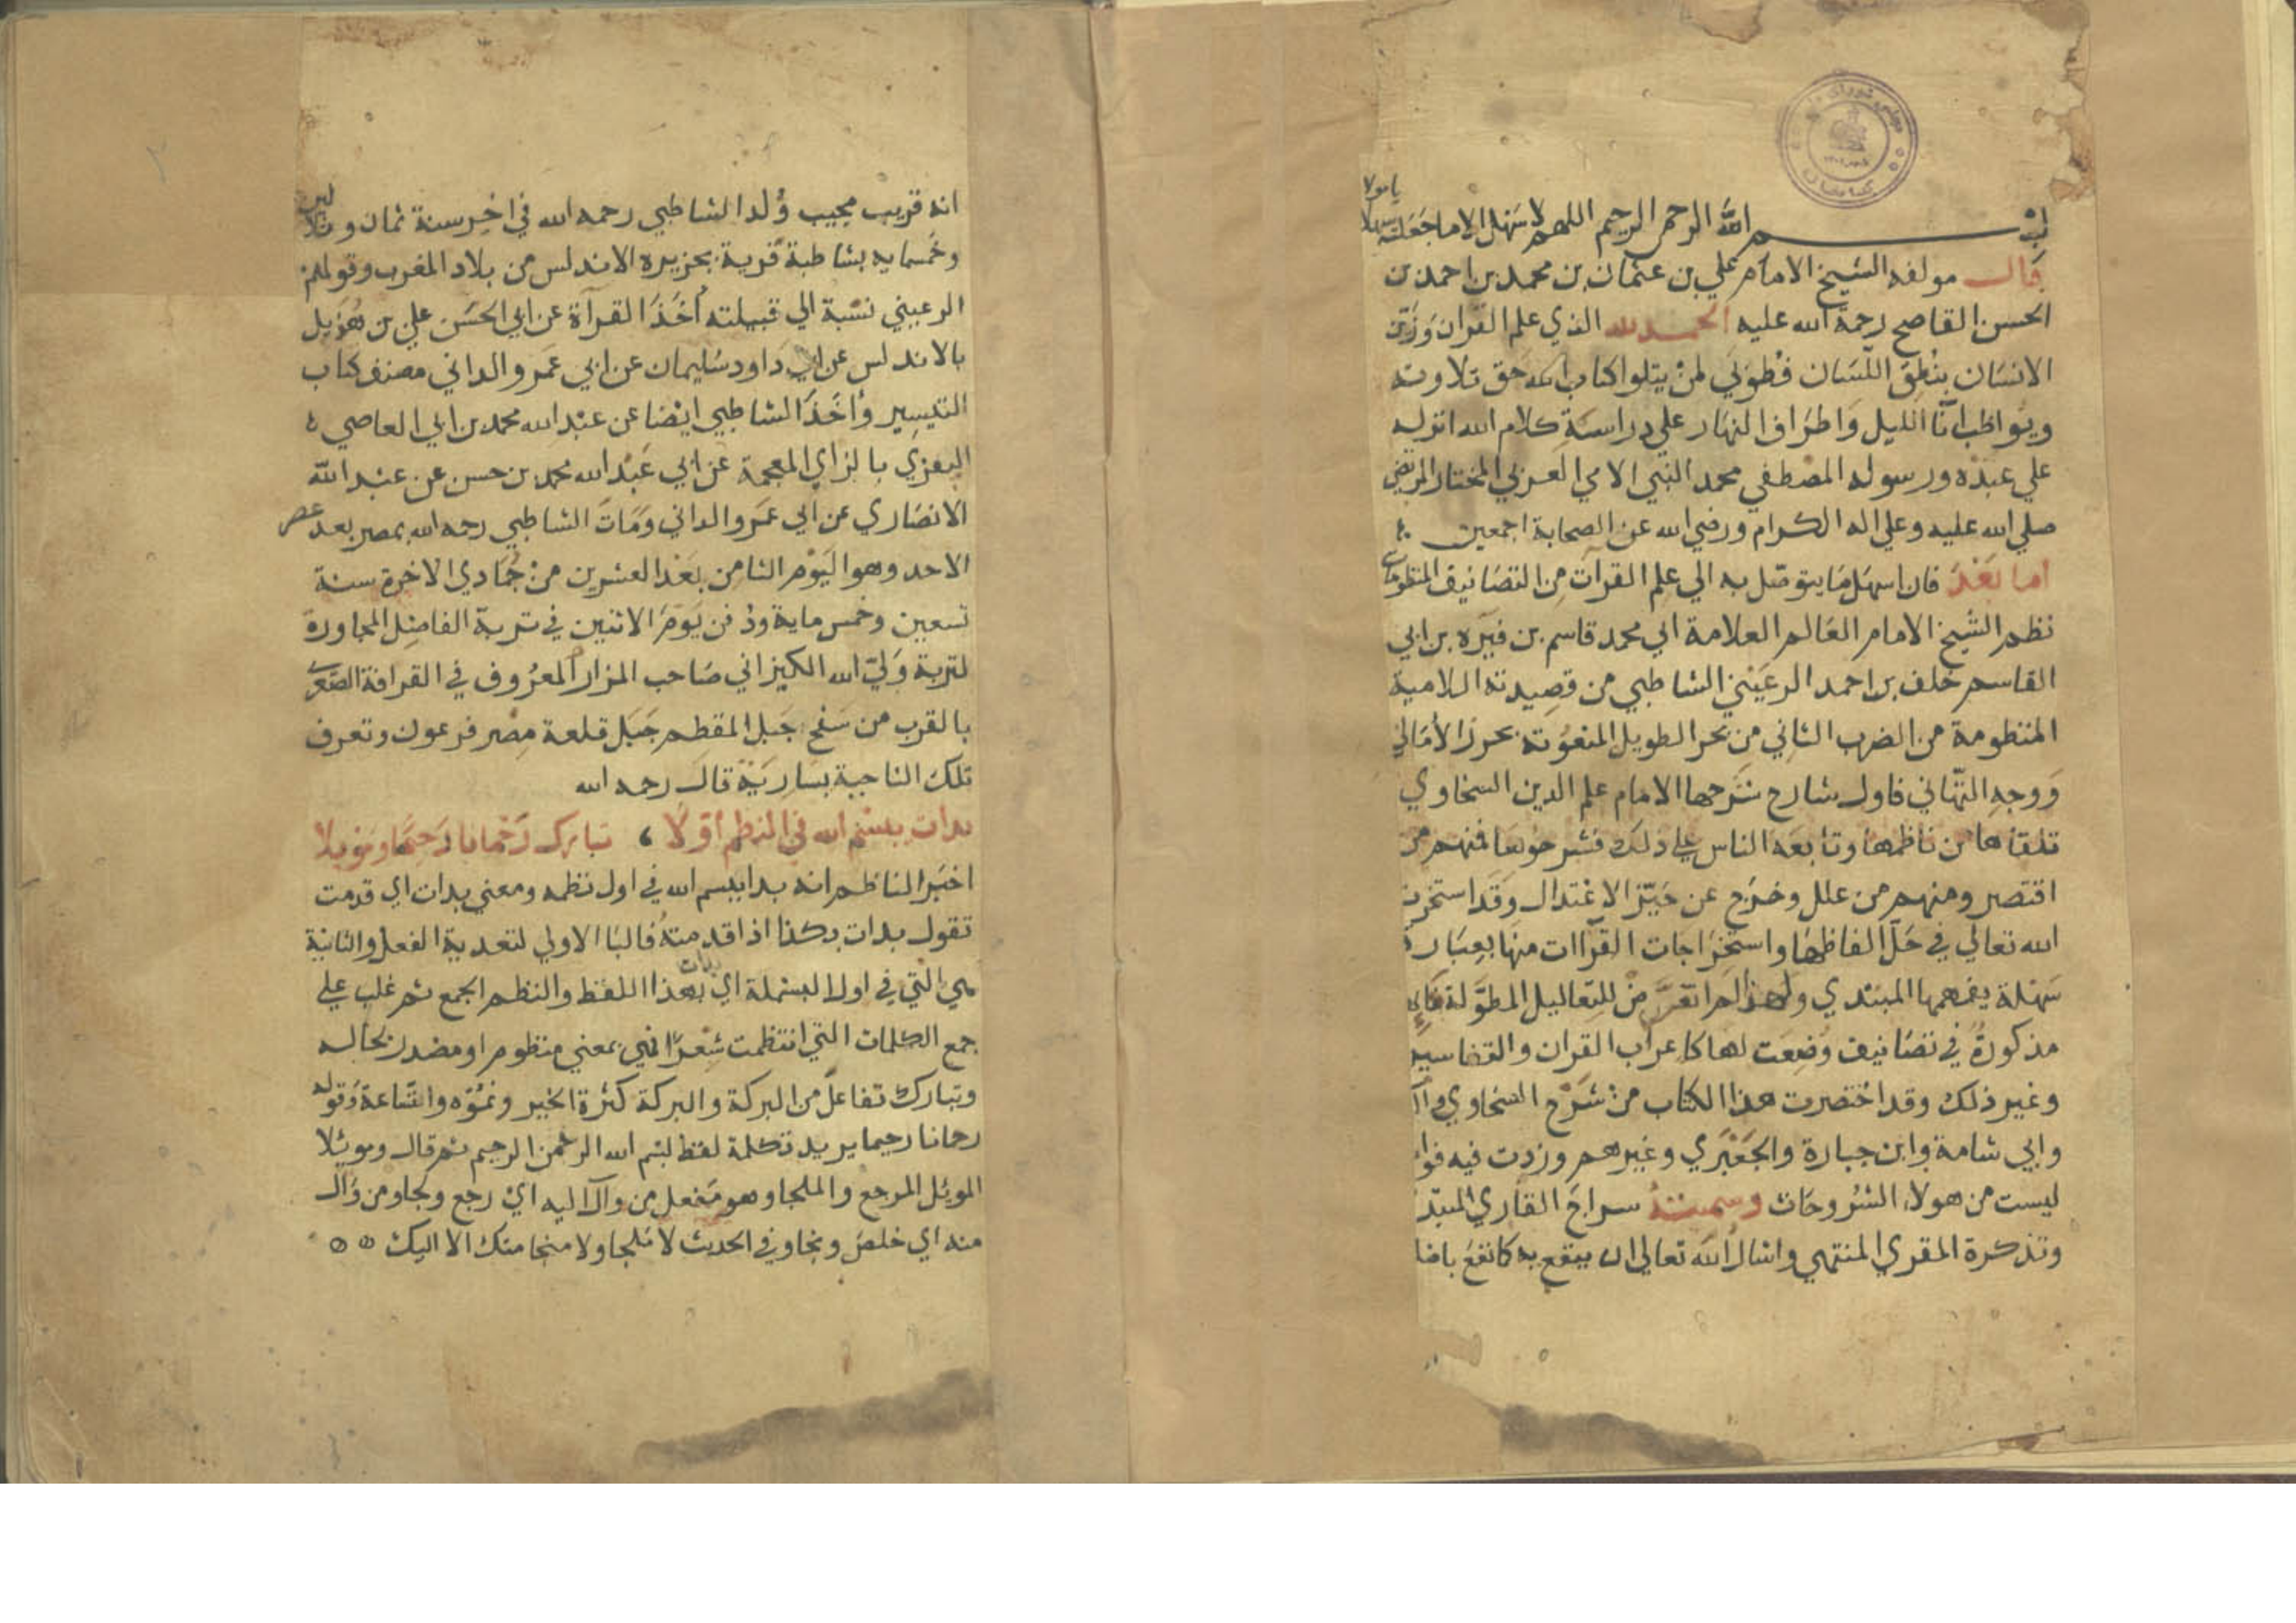 بسم الله الرحمن الرحيم اللهم لا سهل الا ما جعلته سهلا
يا مولا
قال مولفه الشيخ الامام علي بن عثمان بن محمد بن احمد بن
الحسن القاصح رحمة الله عليه الحمد لله الذي علم القران وزين
الانسان بنطق اللسان فطوبي لمن يتلوا كتاب الله حق تلاوته
ويواظب انا الليل واطراف النهار علي دراسة كلام الله انزله
علي عبده ورسوله المصطفي محمد النبي الامي العربي المختار المرتضي
صلي الله عليه وعلي اله الكرام ورضي الله عن الصحابة اجمعين
اما بعد فان اسهل ما يتوصل به الي علم القرآت من التصانيف المنظومات
نظم الشيخ الامام العالم العلامة ابي محمد قاسم بن فيره بن ابي
القاسم خلف بن احمد الرعيني الشاطبي من قصيدته اللامية
المنظومة من الضرب الثاني من بحر الطويل المنعوته بحرز الأماني
ووجه التهاني فاول شارح شرحها الامام علم الدين السخاوي
تلقاها من ناظمها وتابعه الناس علي ذلك فشرحوها فمنهم من
اقتصر ومنهم من علل وخرج عن حيز الاعتدال وقد استخرت
الله تعالي في حل الفاظها واستخراجات القرآات منها بعبارة
سهلة يفهمها المبتدي ولهذا لم اتعرض للتعاليل المطولة فانها
مذكورة في تصانيف وضعت لها كاعراب القران والتفاسير
وغير ذلك وقد اختصرت هذا الكتاب من شرح السخاوي وال
وابي شامة وابن جبارة والجعبري وغيرهم وزدت فيه فوا
ليست من هولاء الشروحات وسميته سراج القاري المبتد
وتذكرة المقري المنتهي واسال الله تعالي ان ينفع به كما نفع باصا
انه قريب مجيب ولد الشاطبي رحمه الله في اخر سنة ثمان وثلاثين
وخمسمايه بشاطبة قرية بجزيرة الاندلس من بلاد المغرب وقولهم
الرعيني نسبة الي قبيلته أخذ القرآة عن ابي الحسن علي بن هذيل
بالاندلس عن ابي داود سليمان عن ابي عمرو الداني مصنف كتاب
التيسير وأخذ الشاطبي ايضا عن عبد الله محمد بن ابي العاصي
النفزي بالزاي المعجمة عن ابي عبد الله محمد بن حسن عن عبد الله
الانصاري عن ابي عمرو الداني ومات الشاطبي رحمه الله بمصر بعد عصر
الاحد وهو اليوم الثامن بعد العشرين من جمادي الاخرة سنة
تسعين وخمس ماية ودفن يوم الاثنين في تربة الفاضل المجاورة
لتربة ولي الله الكيزاني صاحب المزار المعروف في القرافة الصغرى
بالقرب من سفح جبل المقطم جبل قلعة مصر فرعون وتعرف
تلك الناحية بسارية قال رحمه الله
بدات ببسم الله في النظم أولا ، تبارك رحمانا رحيما وموئلا
اخبر الناظم انه بدا ببسم الله في اول نظمه ومعني بدات اي قدمت
تقول بدات بكذا اذا قدمته فالبا الاولي لتعدية الفعل والثانية
هي التي في اول البسملة اي بدات بهذا اللفظ والنظم الجمع ثم غلب علي
جمع الكلمات التي انتظمت شعرا فهي بمعني منظوم او مصدر بحاله
وتبارك تفاعل من البركة والبركة كثرة الخير ونموه واتساعة وقوله
رحمانا رحيما يريد تكلمة لفظ بسم الله الرحمن الرحيم ثم قال وموئلا
الموئل المرجع والملجا وهو مفعل من وأل اليه اي رجع ولجا ومن وأل
منه اي خلص ونجا وفي الحديث لا ملجا ولا منجا منك الا اليك